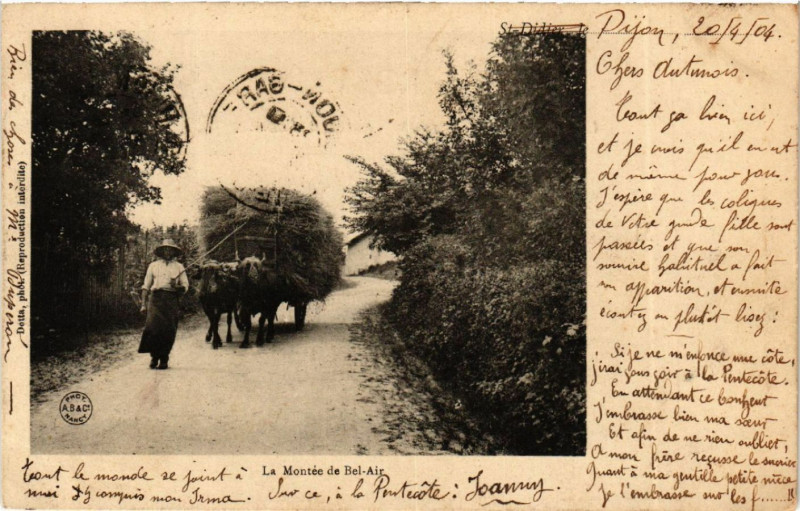 St-Didier
Dijon, 20/4/04.
Chers Autunois.
Tout va bien ici,
et je crois qu'il en est
de même pour vous.
J'espère que les coliques
de votre grande fille sont
passées et que son
sourire habituel a fait
son apparition, et ensuite
écoutez ou plutôt lisez :
Si je ne m'enfonce une côte,
j'irai vous voir à la Pentecôte.
En attendant ce bonheur
J'embrasse bien ma sœur
Et afin de ne rien oublier,
A mon frère reçusse le
Quant à ma gentille petite nièce
je l'embrasse sur les f......!!
Tout le monde se joint à
moi y compris mon Irma.
Sur ce, à la Pentecôte : Joanny
La Montée de Bel-Air
Rien de chose à Mr
Detta, phot. (Reproduction interdite)
PHOT.
A.B & Cie
NANCY